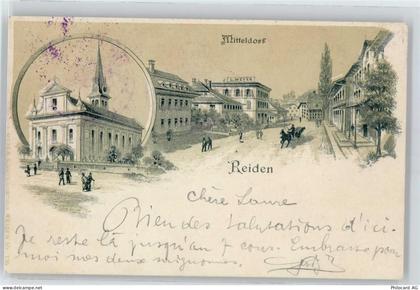 Mitteldorf
Reiden
Chère Laure
Bien des salutations d'ici.
Je reste là jusqu'au 7 cour. Embrasse pour
moi nos deux mignonnes.
www.oldthing.ch
Philokartist AG